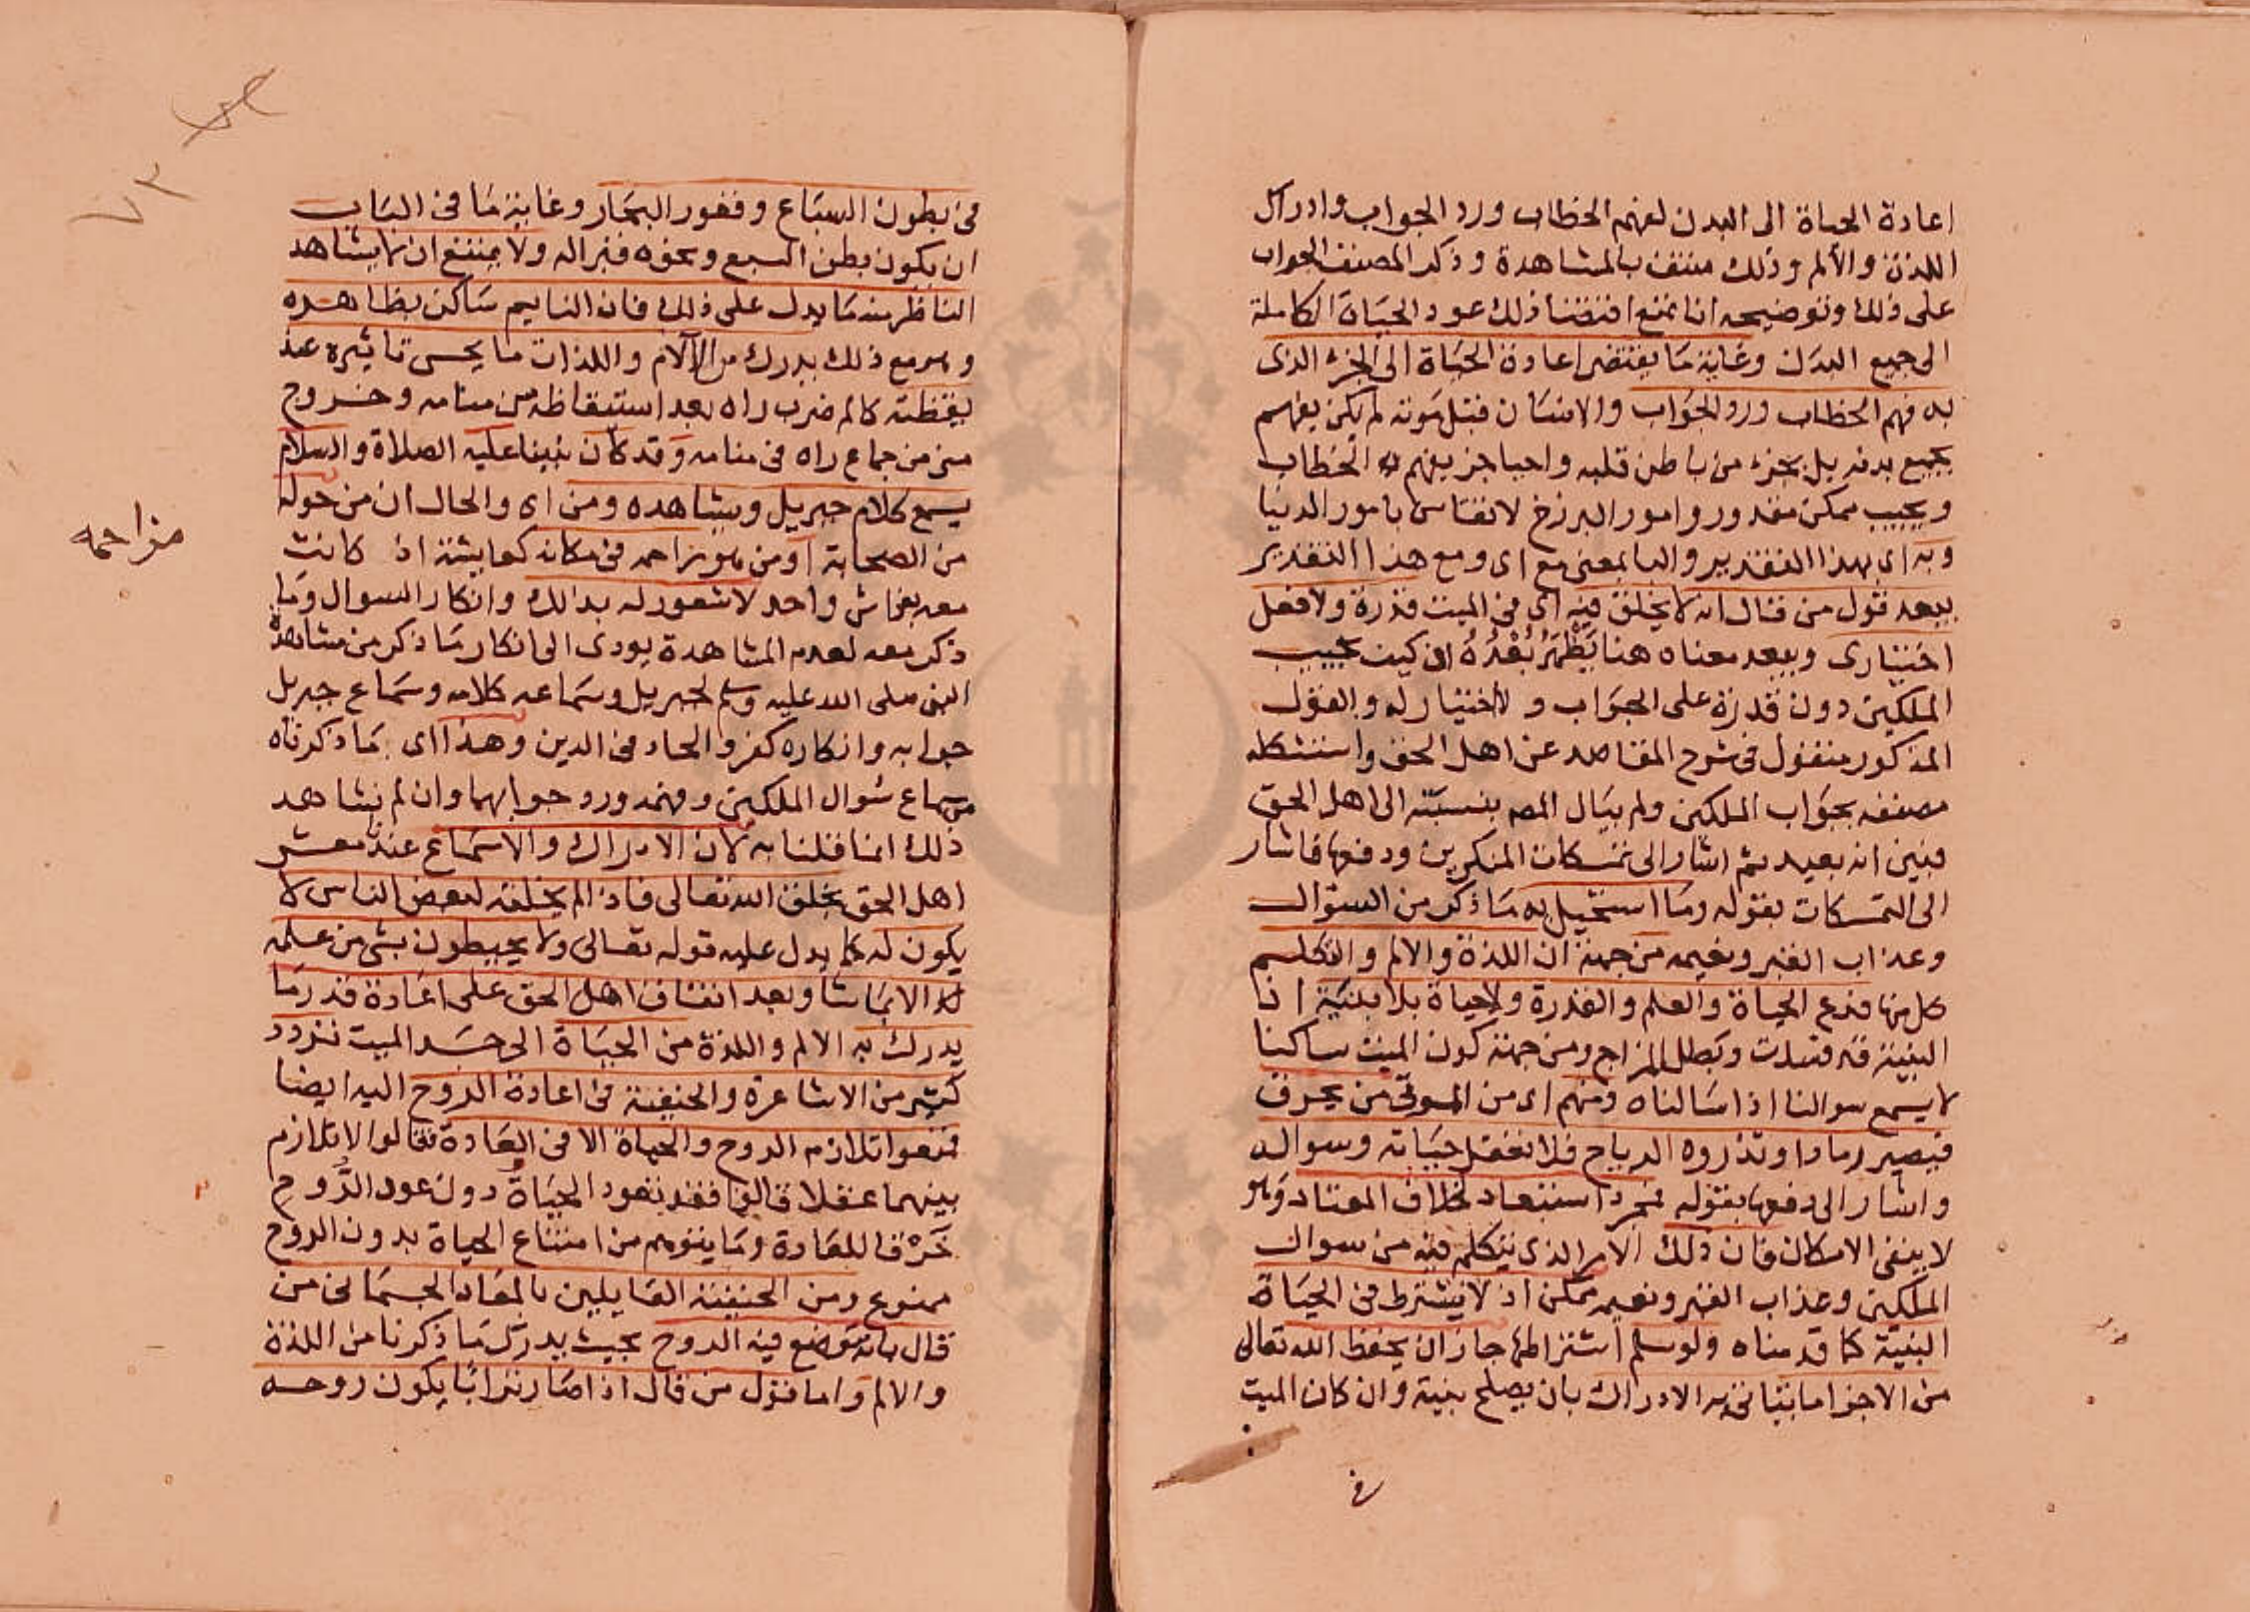 اعادة الحياة الى البدن لفهم الخطاب ورد الجواب وادراك
اللذة والألم وذلك منتف بالمشاهدة وذكر المصنف الجواب
على ذلك وتوضيحه انا نمنع اقتضا ذلك عود الحياة الكاملة
الى جميع البدن وغاية ما يقتضى اعادة الحياة الى الجزء الذى
به فهم الخطاب ورد الجواب والانسان قبل موته لم يكن يفهم
بجميع بدنه بل بجزء من باطن قلبه واحيا جز يفهم به الخطاب
ويجيب ممكن مقدور وامور البرزخ لا تقاس بامور الدنيا
وبه اى بهذا التقدير والبا بمعنى مع اى ومع هذا التقدير
يبعد قول من قال انه لا يخلق فيه اى فى الميت قدرة ولا فعل
اختيارى ويبعد معناه هنا يَظْهَرُ بُعْدُهُ اى كيف يجيب
الملكين دون قدرة على الجواب ولا اختيار له والقول
المذكور منقول فى شرح المقاصد عن اهل الحق واستشكله
مصنفه بجواب الملكين ولم يبال المص بنسبته الى اهل الحق
فبين انه بعيد ثم اشار الى تمسكات المنكرين ودفعها فاشار
الى التمسكات بقوله وما استحيل به ما ذكر من السؤال
وعذاب القبر ونعيمه من جهة ان اللذة والالم والتكلم
كل منها فرع الحياة والعلم والقدرة ولا حياة بلا بنية اذا
البنية قد فسدت وبطل المزاج ومن جهة كون الميت ساكنا
لا يسمع سوالنا اذا سالناه ومنهم اى من الموتى من يحرق
فيصير رمادا وتذروه الرياح فلا تعقل حياته وسواله
واشار الى دفعها بقوله مجرد استبعاد لخلاف المعتاد وهو
لا ينفى الامكان فان ذلك الامر الذى نتكلم فيه من سوال
الملكين وعذاب القبر ونعيمه ممكن اذ لا يشترط فى الحياة
البنية كما قدمناه ولو سلم اشتراطها جاز ان يحفظ الله تعالى
من الاجزا ما يتاتى به الادراك بان يصلح بنية وان كان الميت
فى
فى بطون السباع وقعور البحار وغاية ما فى الباب
ان يكون بطن السبع ونحوه قبرا له ولا يمتنع ان لا يشاهد
الناظر منه ما يدل على ذلك فان النايم ساكن بظاهره
وهو مع ذلك يدرك من الآلام واللذات ما يحس تاثيره عند
يقظته كالم ضرب راه بعد استيقاظه من منامه وخروج
منى من جماع راه فى منامه وقد كان نبينا عليه الصلاة والسلام
يسمع كلام جبريل ويشاهده ومن اى والحال ان من حوله
من الصحابة او من هو مزاحمه فى مكانه كعايشة اذ كانت
معه بفراش واحد لا شعور له بذالك وانكار السوال وما
ذكر معه لعدم المشاهدة يودى الى انكار ما ذكر من مشاهدة
النبى صلى الله عليه وسلم لجبريل وسماعه كلامه وسماع جبريل
جوابه وانكاره كفر والحاد فى الدين وهذا اى ما ذكرناه
من سماع سُوال الملكين وفهمه ورد جوابهما وان لم نشاهد
ذلك انما قلنا به لان الادراك والاسماع عندنا معشر
اهل الحق بخلق الله تعالى فاذا لم يخلقه لبعض الناس لا
يكون له كما يدل عليه قوله تعالى ولا يحيطون بشى من علمه
الا بما شا وبعد اتفاق اهل الحق على اعادة قدر ما
يدرك به الالم واللذة من الحياة الى جسد الميت تردد
كثير من الاشاعرة والحنفية فى اعادة الروح اليه ايضا
فمنعوا تلازم الروح والحياة الا فى العادة فقالوا لا تلازم
بينهما عقلا قالوا فقد تعود الحياةُ دون عود الرُّوح
خَرْقا للعادة وما يتوهم من امتناع الحياة بدون الروح
ممنوع ومن الحنفية القايلين بالمعاد الجسمانى من
قال بانه توضع فيه الروح بحيث يدرك ما ذكرنا من اللذة
والالم واما قول من قال اذا صار ترابا يكون روحه
مزاحمه
٧٣